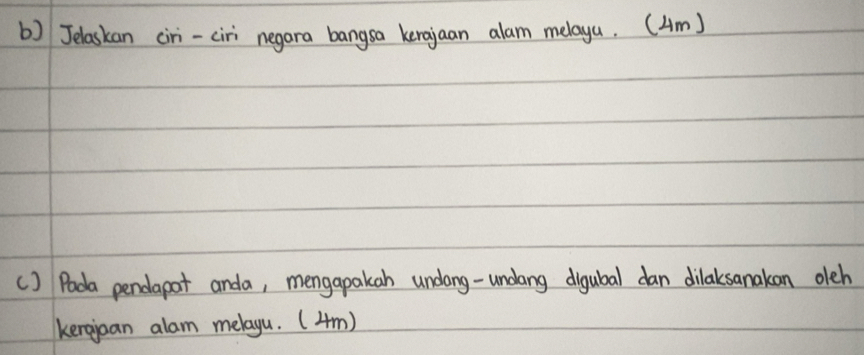 b) Jelaskan ciri-ciri negara bangsa kerajaan alam melayu. (4m)
c) Pada pendapat anda, mengapakah undang-undang digubal dan dilaksanakan oleh
kerajaan alam melayu. (4m)